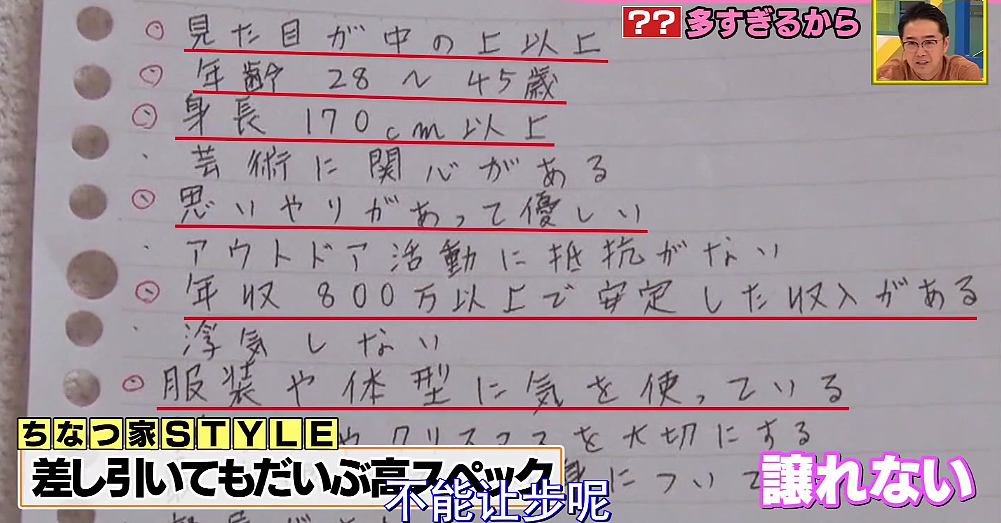 ?? 多すぎるから
見た目が中の上以上
年齢 28〜45歳
身長 170cm以上
・芸術に関心がある
思いやりがあって優しい
・アウトドア活動に抵抗がない
年収 800万以上で安定した収入がある
・浮気しない
服装や体型に気を使っている
やクリスマスを大切にする
について
ちなつ家STYLE
差し引いてもだいぶ高スペック
譲れない
不能让步呢